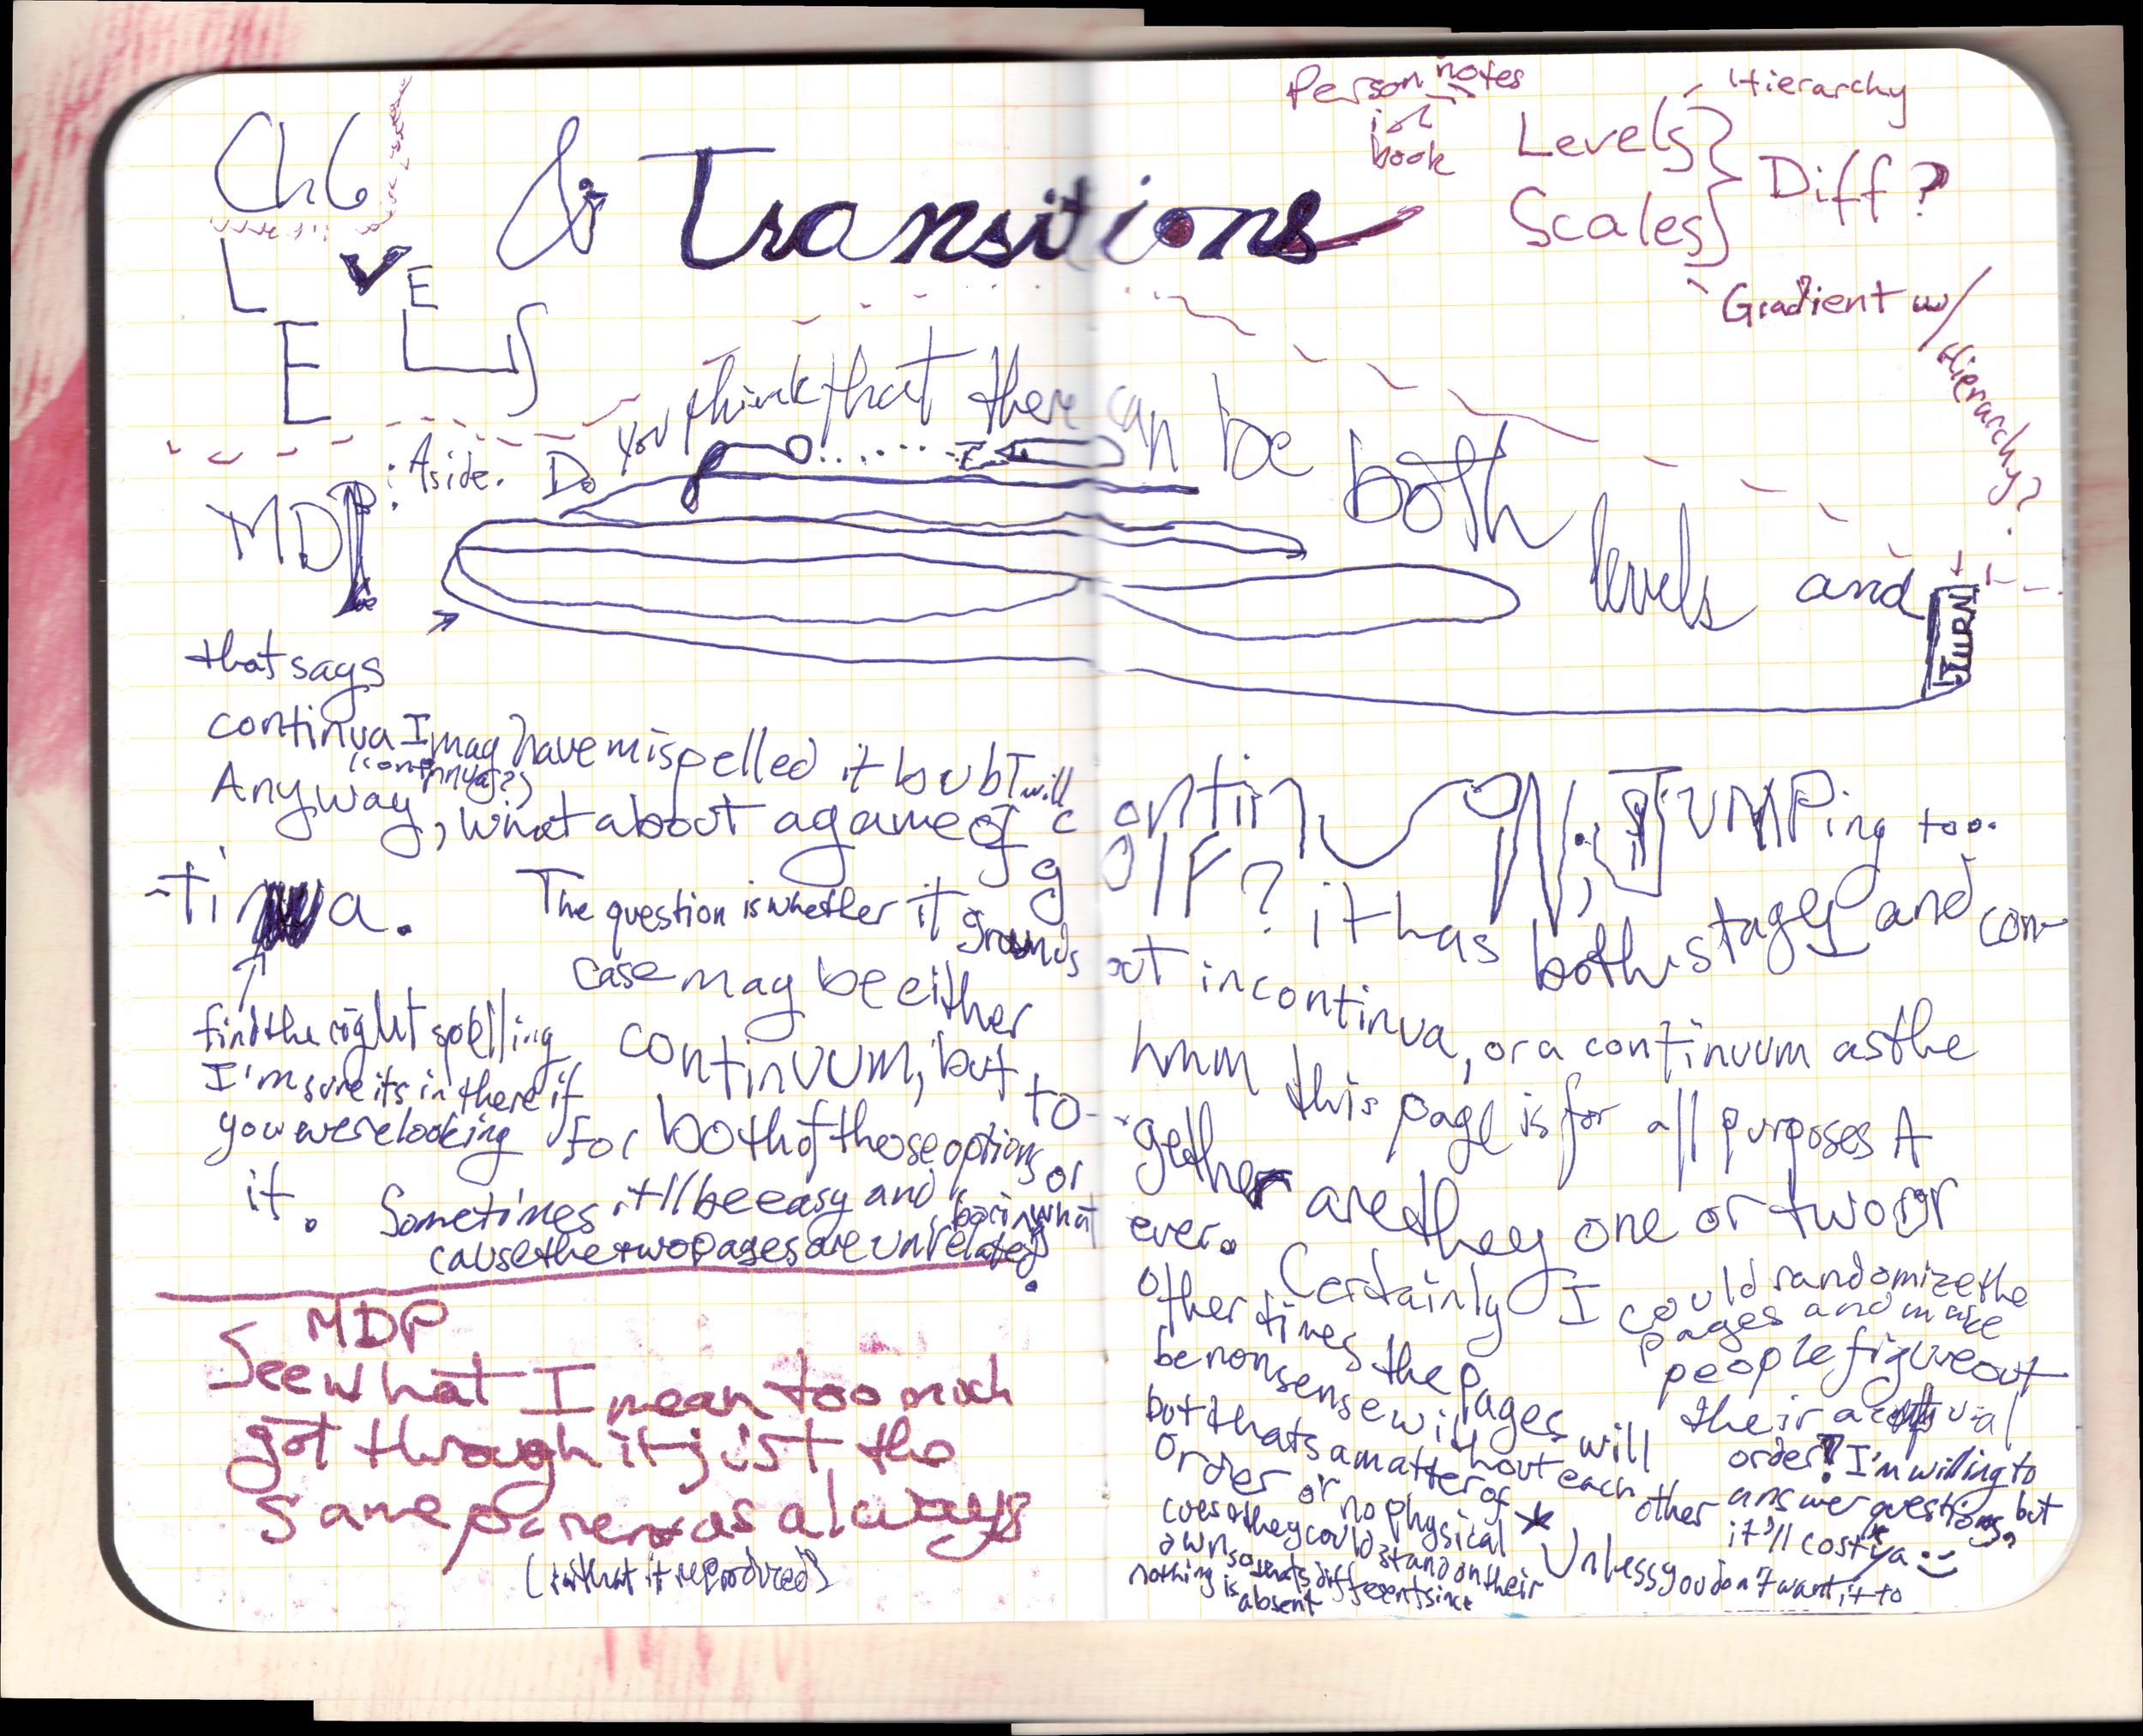 Ch 6
LEVELS
& Transitions
Person notes
in
book
Levels
Scales
Diff?
Hierarchy
Gradient w/ Hierarchy?
MDP: Aside. Do you think that there can be both levels and
TURN
that says
continua I may have mispelled it but I will
(continnua?)
Anyway, what about a game of continuoN; JUMPing too.
golf? it has both stages and con-
-tinua.
The question is whether it grounds out in continua, or a continuum as the
case may be either hmm this page is for all purposes A
continuum, but to-gether are they one or two or
find the right spelling
I'm sure its in there if
you were looking for
it.
both of those options or what ever. Certainly I could randomize the
pages and make
people figure out
their actual
order! I'm willing to
answer questions, but
it'll cost ya :)
Sometimes it'll be easy and boring
cause the two pages are unrelated.
Other times the pages will
be nonsense without each other
but thats a matter of
order or no physical
they could stand on their
own so thats different since
nothing is
absent
* Unless you don't want it to
MDP
See what I mean too much
got through it just the
same as always
(what it reproduced)